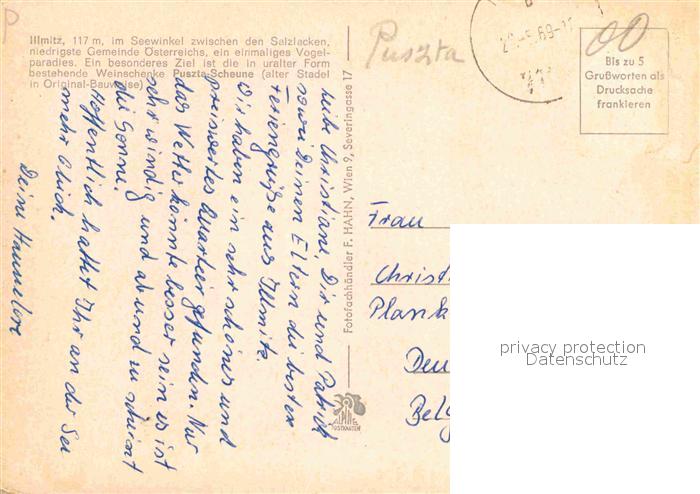 Illmitz, 117 m, im Seewinkel zwischen den Salzlacken,
niedrigste Gemeinde Österreichs, ein einmaliges Vogel-
paradies. Ein besonderes Ziel ist die in uralter Form
bestehende Weinschenke Puszta-Scheune (alter Stadel
in Original-Bauweise)
Puszta
Bis zu 5
Grußworten als
Drucksache
frankieren
Liebe Christiane, Dir und Patrick
sowie Deinen Eltern die besten
Feriengrüße aus Illmitz.
Wir haben ein sehr schönes und
preiswertes Quartier gefunden. Nur
das Wetter könnte besser sein es ist
sehr windig und ab und zu scheint
die Sonne.
Hoffentlich hattet Ihr an der See
mehr Glück.
Deine Hannelore
Fotofachhändler F. HAHN, Wien 9, Severingasse 17
POSTKARTEN
Frau
Christ
Plank
Deu
Belg
privacy protection
Datenschutz